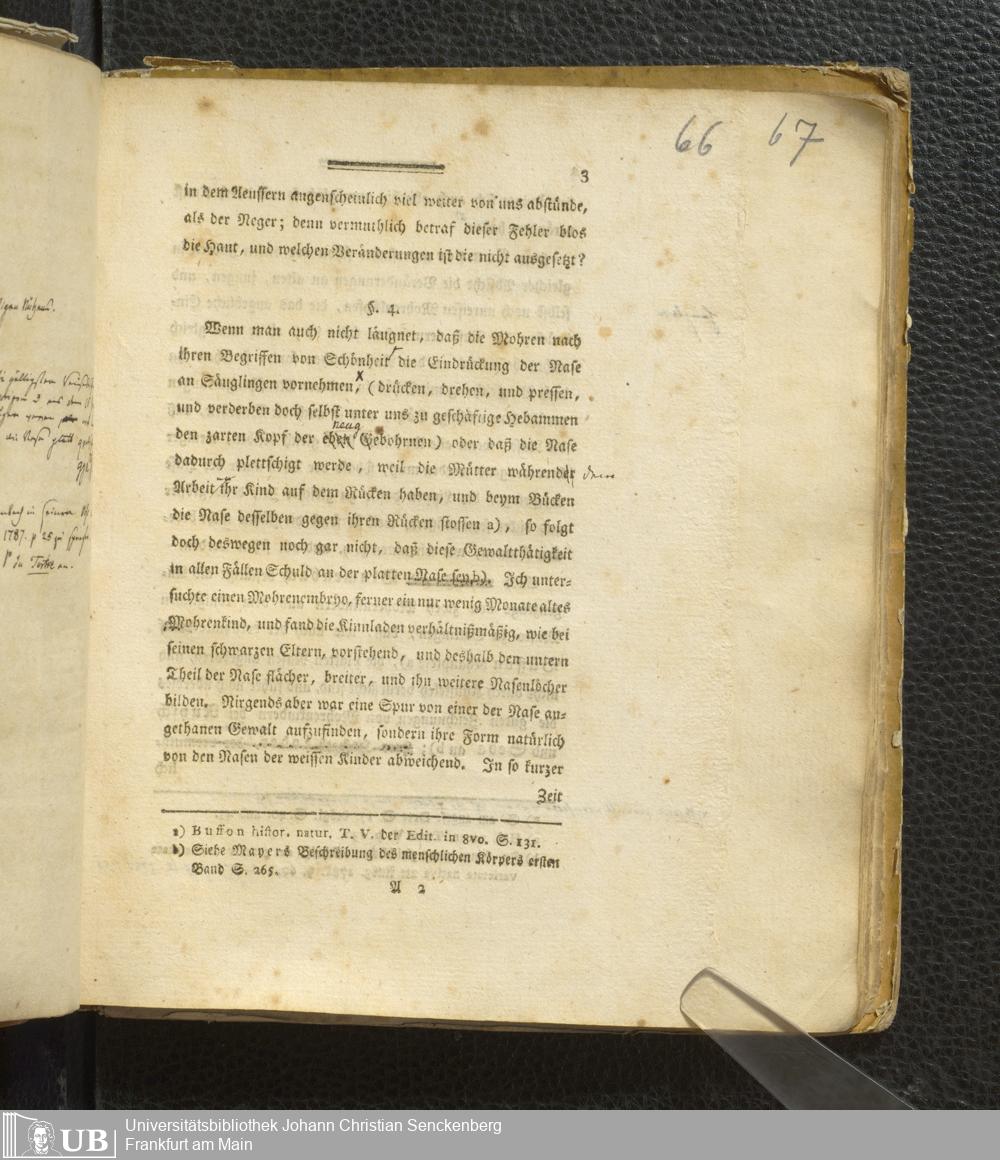 66 67
3
in dem Aeussern augenscheinlich viel weiter von uns abstünde,
als der Neger; denn vermuthlich betraf dieser Fehler blos
die Haut, und welchen Veränderungen ist die nicht ausgesetzt?
§. 4.
Wenn man auch nicht läugnet, daß die Mohren nach
ihren Begriffen von Schönheit die Eindrückung der Nase
an Säuglingen vornehmen, (drücken, drehen, und pressen,
und verderben doch selbst unter uns zu geschäftige Hebammen
neug
den zarten Kopf der eben Gebohrnen) oder daß die Nase
dadurch plettschigt werde, weil die Mütter während der
Arbeit ihr Kind auf dem Rücken haben, und beym Bücken
die Nase desselben gegen ihren Rücken stossen a), so folgt
doch deswegen noch gar nicht, daß diese Gewaltthätigkeit
in allen Fällen Schuld an der platten Nase sey b). Ich unter-
suchte einen Mohrenembryo, ferner ein nur wenig Monate altes
Mohrenkind, und fand die Kinnladen verhältnißmäßig, wie bei
seinen schwarzen Eltern, vorstehend, und deshalb den untern
Theil der Nase flächer, breiter, und ihn weitere Nasenlöcher
bilden. Nirgends aber war eine Spur von einer der Nase an-
gethanen Gewalt aufzufinden, sondern ihre Form natürlich
von den Nasen der weissen Kinder abweichend. In so kurzer
Zeit
a) Buffon histor. natur. T. V. der Edit. in 8vo. S. 131.
b) Siehe Mayers Beschreibung des menschlichen Körpers ersten
Band S. 265.
A 2
1787. p 25
du Tertre an.
UB
Universitätsbibliothek Johann Christian Senckenberg
Frankfurt am Main